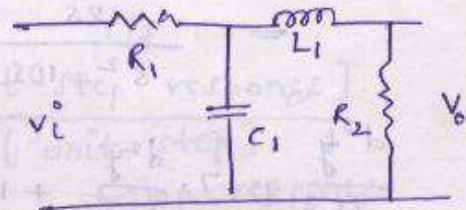 R1
L1
vi
C1
R2
Vo